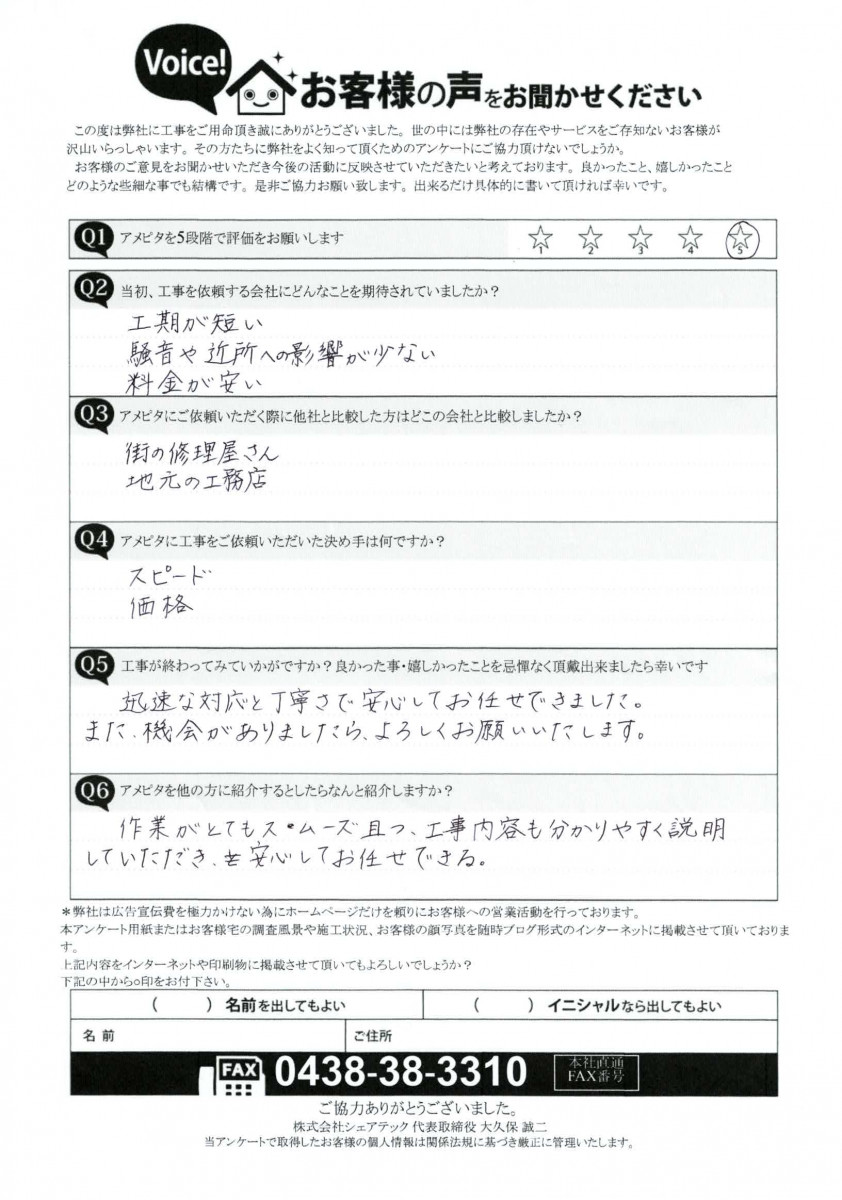 Voice! お客様の声をお聞かせください
この度は弊社に工事をご用命頂き誠にありがとうございました。世の中には弊社の存在やサービスをご存知ないお客様が
沢山いらっしゃいます。その方たちに弊社をよく知って頂くためのアンケートにご協力頂けないでしょうか。
お客様のご意見をお聞かせいただき今後の活動に反映させていただきたいと考えております。良かったこと、嬉しかったこと
どのような些細な事でも結構です。是非ご協力お願い致します。出来るだけ具体的に書いて頂ければ幸いです。
Q1 アメピタを5段階で評価をお願いします ☆1 ☆2 ☆3 ☆4 ☆5
Q2 当初、工事を依頼する会社にどんなことを期待されていましたか？
工期が短い
騒音や近所への影響が少ない
料金が安い
Q3 アメピタにご依頼いただく際に他社と比較した方はどこの会社と比較しましたか？
街の修理屋さん
地元の工務店
Q4 アメピタに工事をご依頼いただいた決め手は何ですか？
スピード
価格
Q5 工事が終わってみていかがですか？良かった事・嬉しかったことを忌憚なく頂戴出来ましたら幸いです
迅速な対応と丁寧さで安心してお任せできました。
また、機会がありましたら、よろしくお願いいたします。
Q6 アメピタを他の方に紹介するとしたらなんと紹介しますか？
作業がとてもスムーズ且つ、工事内容も分かりやすく説明
していただき、安心してお任せできる。
＊弊社は広告宣伝費を極力かけない為にホームページだけを頼りにお客様への営業活動を行っております。
本アンケート用紙またはお客様宅の調査風景や施工状況、お客様の顔写真を随時ブログ形式のインターネットに掲載させて頂いておりま
す。
上記内容をインターネットや印刷物に掲載させて頂いてもよろしいでしょうか？
下記の中から○印をお付下さい。
（　　）名前を出してもよい （　　）イニシャルなら出してもよい
名前 ご住所
FAX 0438-38-3310 本社直通
FAX番号
ご協力ありがとうございました。
株式会社シェアテック 代表取締役 大久保 誠二
当アンケートで取得したお客様の個人情報は関係法規に基づき厳正に管理いたします。